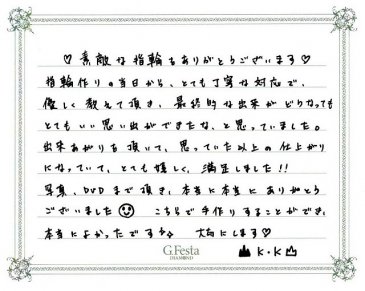 ♡素敵な指輪をありがとうございます♡
指輪作りの当日から、とても丁寧な対応で、
優しく教えて頂き、最終的な出来がどうなっても
とてもいい思い出ができたな、と思っていました。
出来あがりを頂いて、思っていた以上の仕上がり
になっていて、とても嬉しく、満足しました!!
写真、DVDまで頂き、本当に本当にありがとう
ございました☺ こちらで手作りすることができ、
本当によかったです☆ 大切にします♡
G.Festa
DIAMOND
K・K